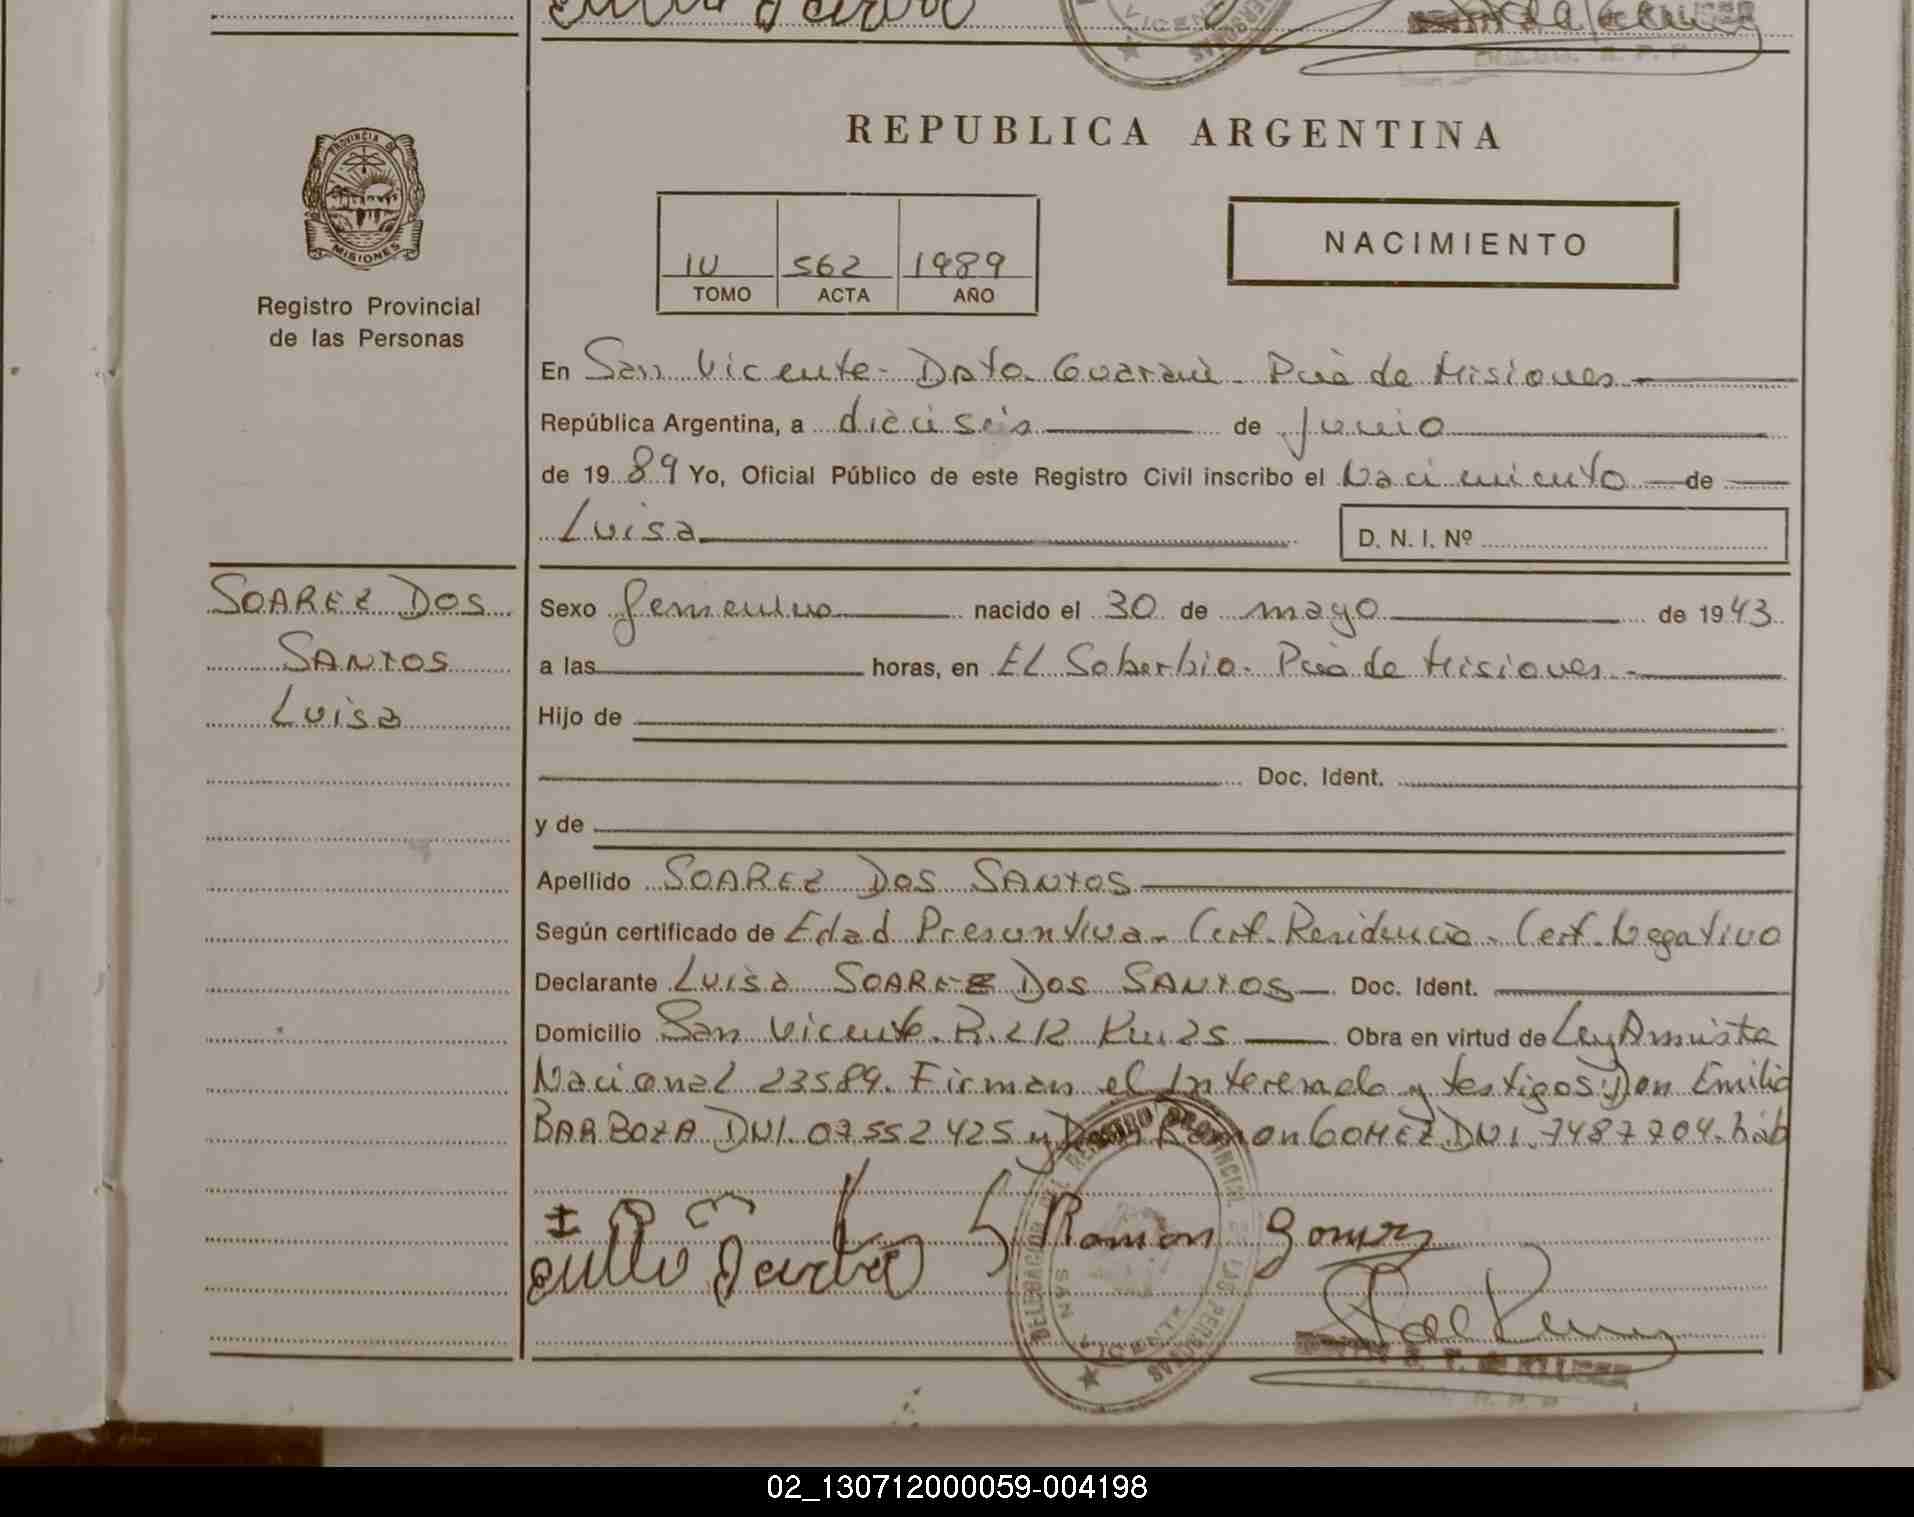 REPUBLICA ARGENTINA
PROVINCIA DE
MISIONES
Registro Provincial
de las Personas
IV 562 1989
TOMO ACTA AÑO
NACIMIENTO
En San Vicente - Dpto. Guarani - Pcia de Misiones
República Argentina, a dieciseis de Junio
de 19 89 Yo, Oficial Público de este Registro Civil inscribo el Nacimiento de
Luisa
D. N. I. Nº
SOAREZ DOS
SANTOS
Luisa
Sexo femenino nacido el 30 de mayo de 19 43
a las horas, en EL Soberbio - Pcia de Misiones -
Hijo de
Doc. Ident.
y de
Apellido SOAREZ DOS SANTOS
Según certificado de Edad Presuntiva - Cert. Residencia - Cert. Negativo
Declarante Luisa SOAREZ DOS SANTOS Doc. Ident.
Domicilio San Vicente. Km 25 Obra en virtud de Ley Amnistia
Nacional 23589. Firman el Interesado y testigos Don Emilio
BARBOZA DNI. 07552425 y Don Ramon GOMEZ DNI. 7487704. hab
Ramon Gomez
DELEGACION DEL REGISTRO PROVINCIAL DE LAS PERSONAS
SAN VICENTE
02_130712000059-004198